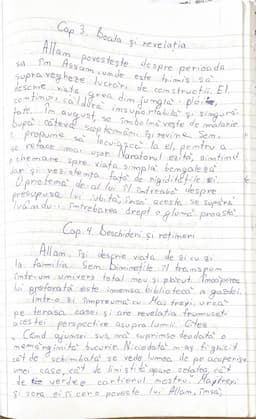 Cap 3. Boala și revelația
Allan povestește despre perioada
sa în Assam, unde este trimis să
supravegheze lucrări de construcții. El
descrie viața grea din junglă - ploile
continui, căldura insuportabilă și singură-
tate. În august, se îmbolnăvește de malarie
După câteva săptămâni își revine. Sen
îi propune să locuiască la el, pentru a
se reface mai ușor. Naratorul ezită, simțind
o chemare spre viața simplă bengaleză
dar și rezistența față de rigiditățile ei.
O prietenă de-al lui îl întreabă despre
presupusa lui iubită, însă acesta se supără
luându-i întrebarea drept o glumă proastă.
Cap. 4. Deschideri și rețineri
Allan, își descrie viața de zi cu zi
la familia Sen. Diminețile îl transpun
într-un univers total nou și plăcut. Încăperea
lui preferată este imensa bibliotecă a gazdei.
Într-o zi împreună cu Maitreyi, urcă
pe terasa casei și are revelația frumuseții
acestei perspective asupra lumii. Citez
„Când ajunsei sus, mă suprinse deodată o
nemărginită bucurie. Niciodată n-aș fi ghicit
cât de schimbată se vede lumea de pe acoperișul
unei case, cât de liniștit apare cetatea, cât
de verde cartierul nostru. Maitreyi
și sora ei îi cere poveste lui Allan, însă